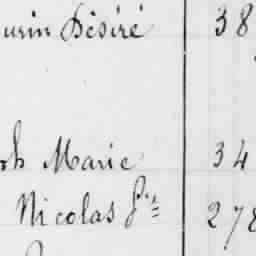 urin Désiré 38
ph Marie 34
Nicolas 278